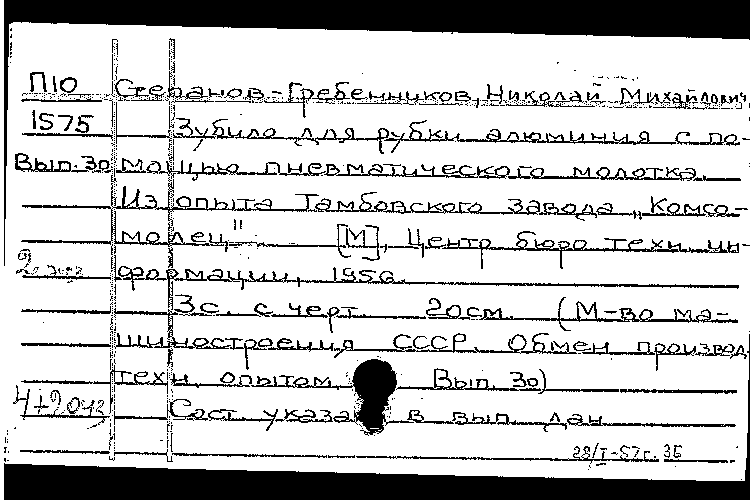 П10 Степанов-Гребенников, Николай Михайлович
1575 Зубило для рубки алюминия с по-
Вып. 30 мощью пневматического молотка.
Из опыта Тамбовского завода „Комсо-
молец" [М], Центр бюро техн. ин-
2 экз формации, 1956.
3с. с черт. 20см. (М-во ма-
шиностроения СССР. Обмен производ
техн. опытом, Вып. 30)
Сост. указа в вып. дан
28/I-57г. 36